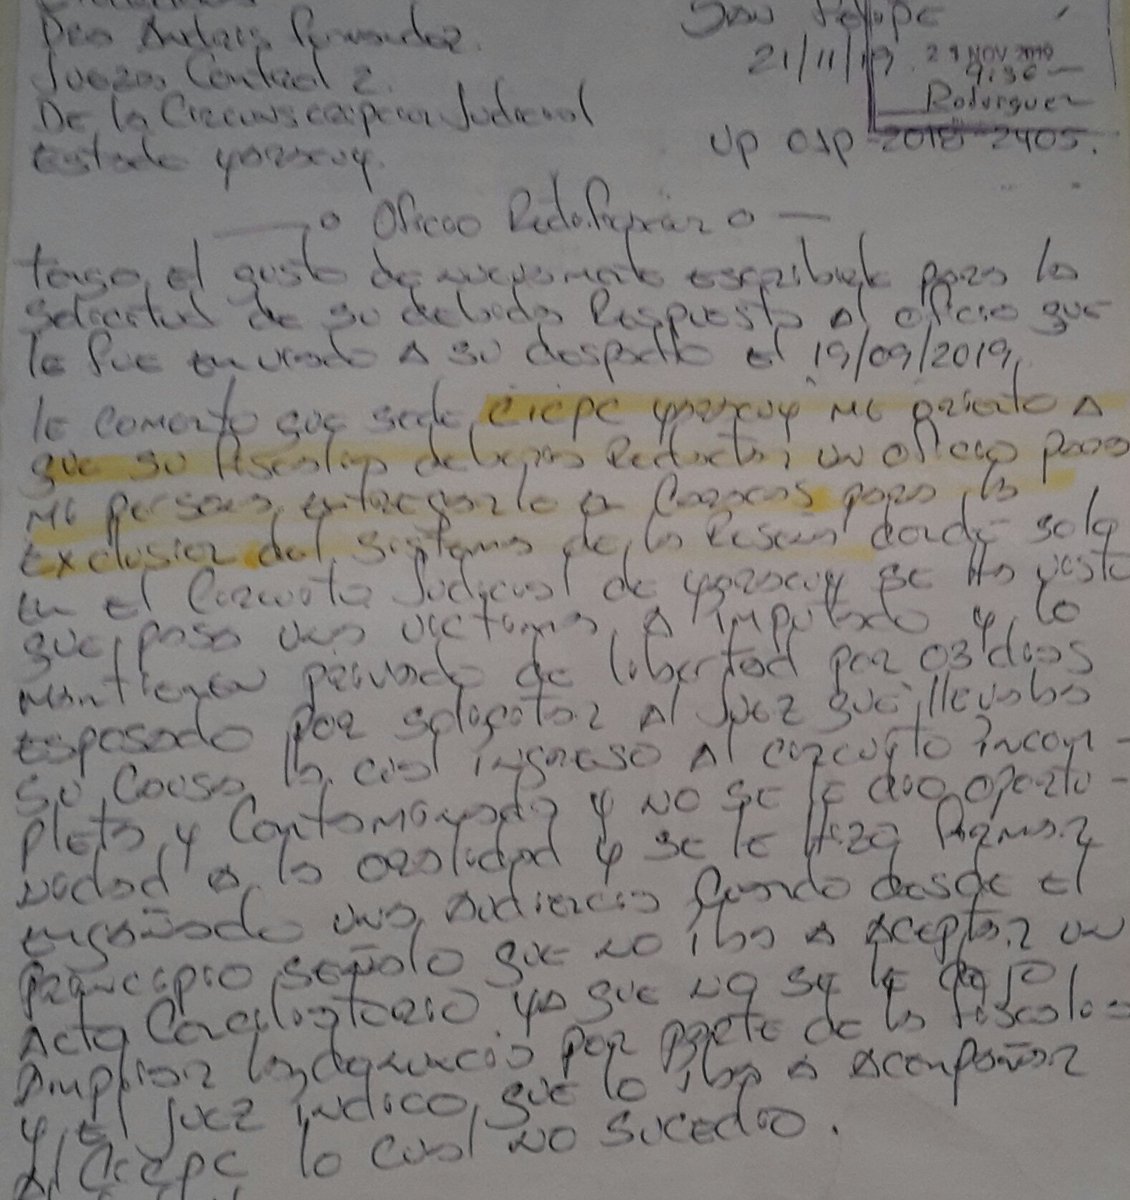 San Felipe
21/11/19
21 NOV 2019
9:36
Rodriguez
UP OJP-2018-2405.
Fernandez
Juez Control 2.
De la Circunscripcion Judicial
Estado yaracuy.
Oficio
tengo el gusto de nuevamente escribirle para la
solicitud de su debida Respuesta Al oficio que
le fue enviado A su despacho el 19/09/2019,
le comento que sede, cicpc yaracuy Me oriento A
que su fiscalia deberia Redactar un oficio para
Mi persona, entregarlo en Caracas para la
Exclusion del sistema de la Resena donde solo
en el Circuito Judicial de yaracuy se Ha visto
que pasa una victima A imputado y lo
Mantienen privado de libertad por 03 dias
esposado por solicitar Al Juez que llevaba
su Causa la cual ingreso Al circuito incom-
pleta y Contaminada y NO se le dio oportu-
nidad A la oralidad y se le Hizo firmar
engañado una Audiencia Cuando desde el
principio señalo que NO iba A Aceptar un
Acta Conciliatorio ya que NO se le dejo
Ampliar la denuncia por parte de la fiscalia
y el Juez indico que lo iba A Acompañar
Al Cicpc lo cual NO Sucedio.